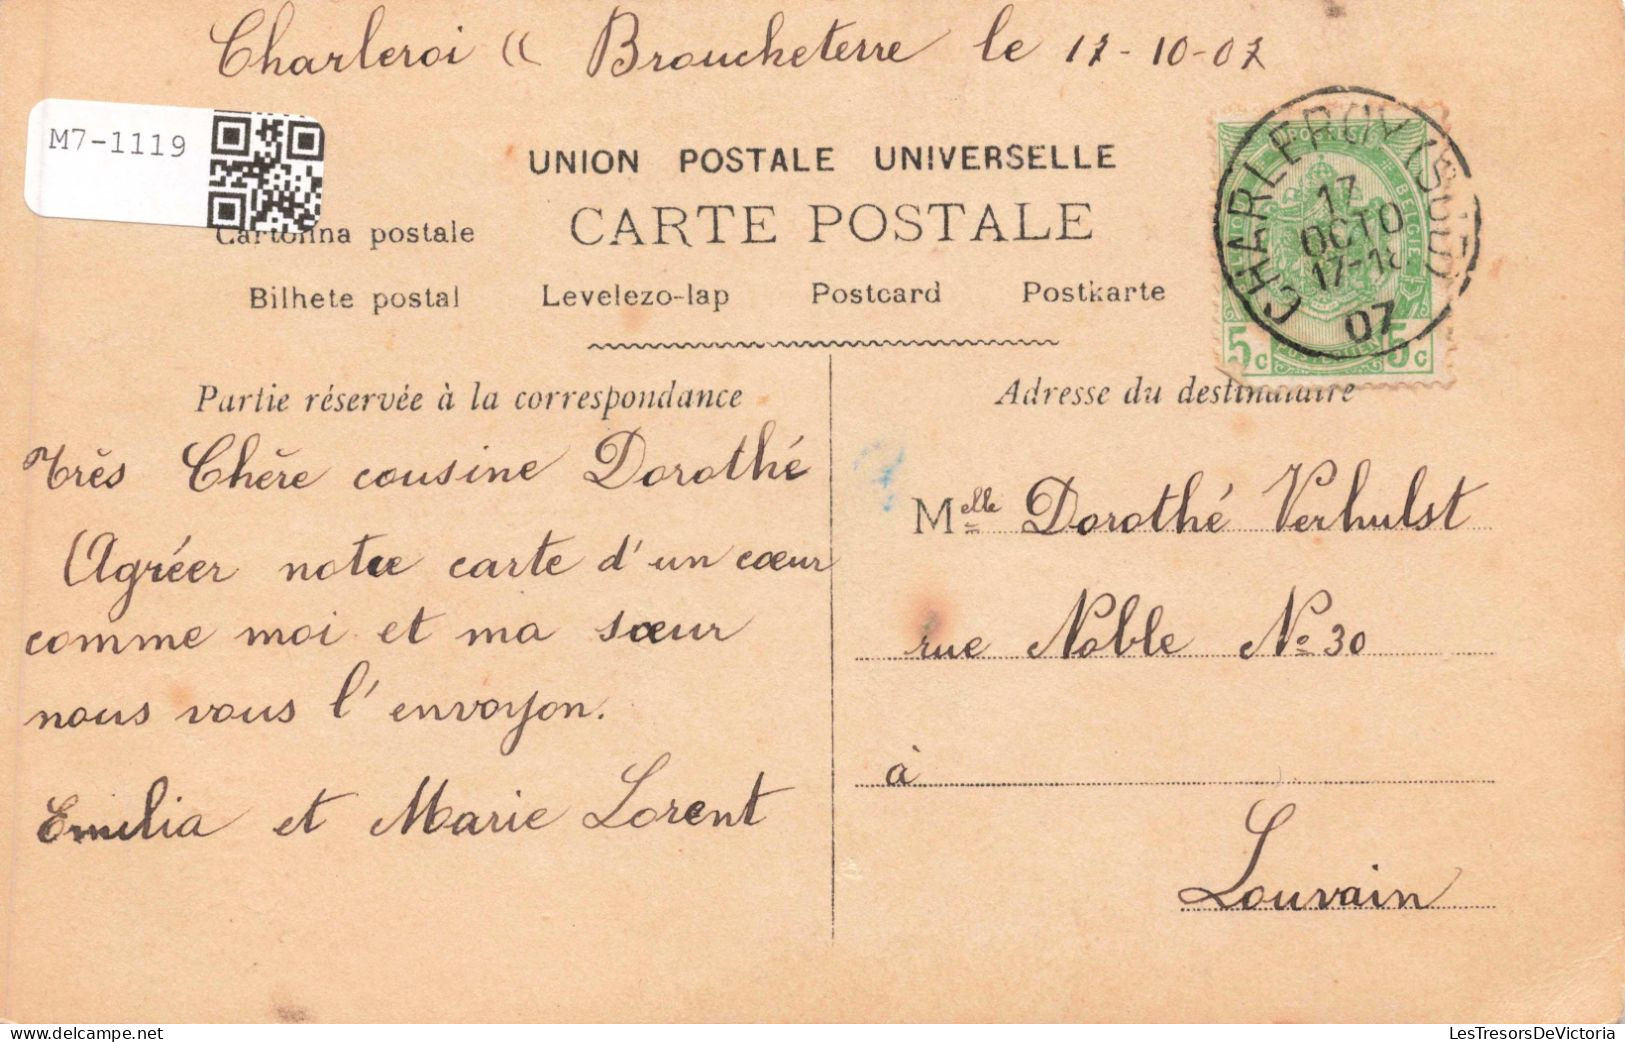 Charleroi (( Broucheterre le 17-10-07
M7-1119
UNION POSTALE UNIVERSELLE
CARTE POSTALE
Cartolina postale
Bilhete postal Levelezo-lap Postcard Postkarte
CHARLEROY (SUD)
17
OCTO
17-18
07
BELGIE
5c 5c
Partie réservée à la correspondance
Très Chère cousine Dorothé
Agréer notre carte d'un cœur
comme moi et ma sœur
nous vous l'envoyon.
Emilia et Marie Lorent
Adresse du destinataire
Melle Dorothé Verhulst
rue Noble No 30
à
Louvain
LesTresorsDeVictoria